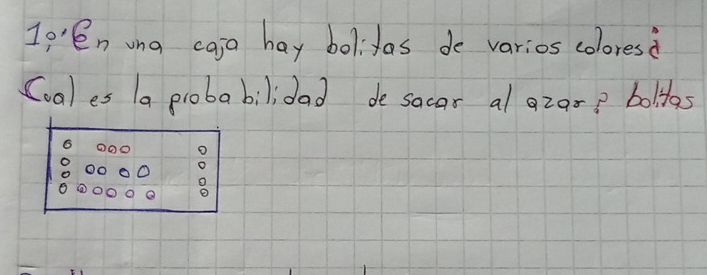 1º En una caja hay bolitas de varios colores ¿
Cual es la probabilidad de sacar al azar? bolitas